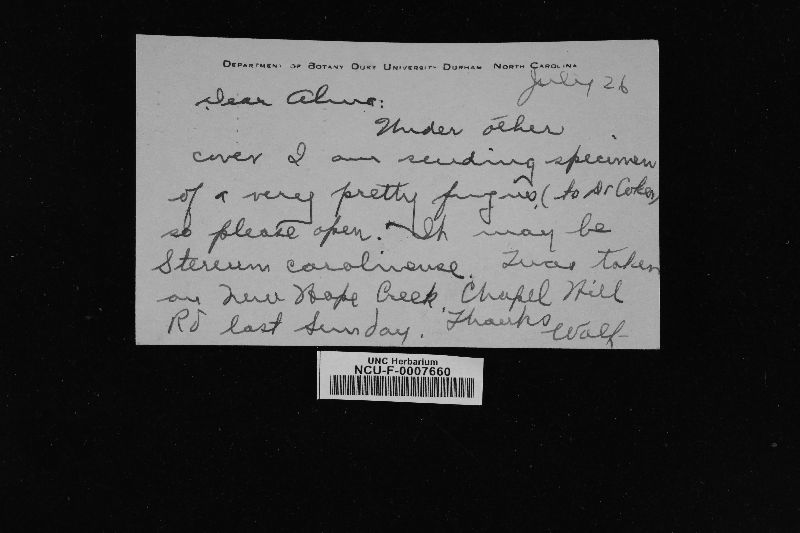 DEPARTMENT OF BOTANY DUKE UNIVERSITY DURHAM NORTH CAROLINA
July 26
Dear Alma:
Under other
cover I am sending specimen
of a very pretty fungus, (to Dr Coker)
so please open. It may be
Stereum carolinense. Twas taken
on New Hope Creek, Chapel Hill
Rd last Sunday. Thanks
Wolf
UNC Herbarium
NCU-F-0007660